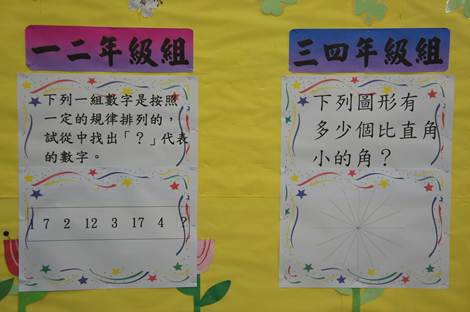 一二年級組
下列一組數字是按照
一定的規律排列的,
試從中找出「?」代表
的數字。
1 7 2 12 3 17 4 ?
三四年級組
下列圖形有
多少個比直角
小的角?